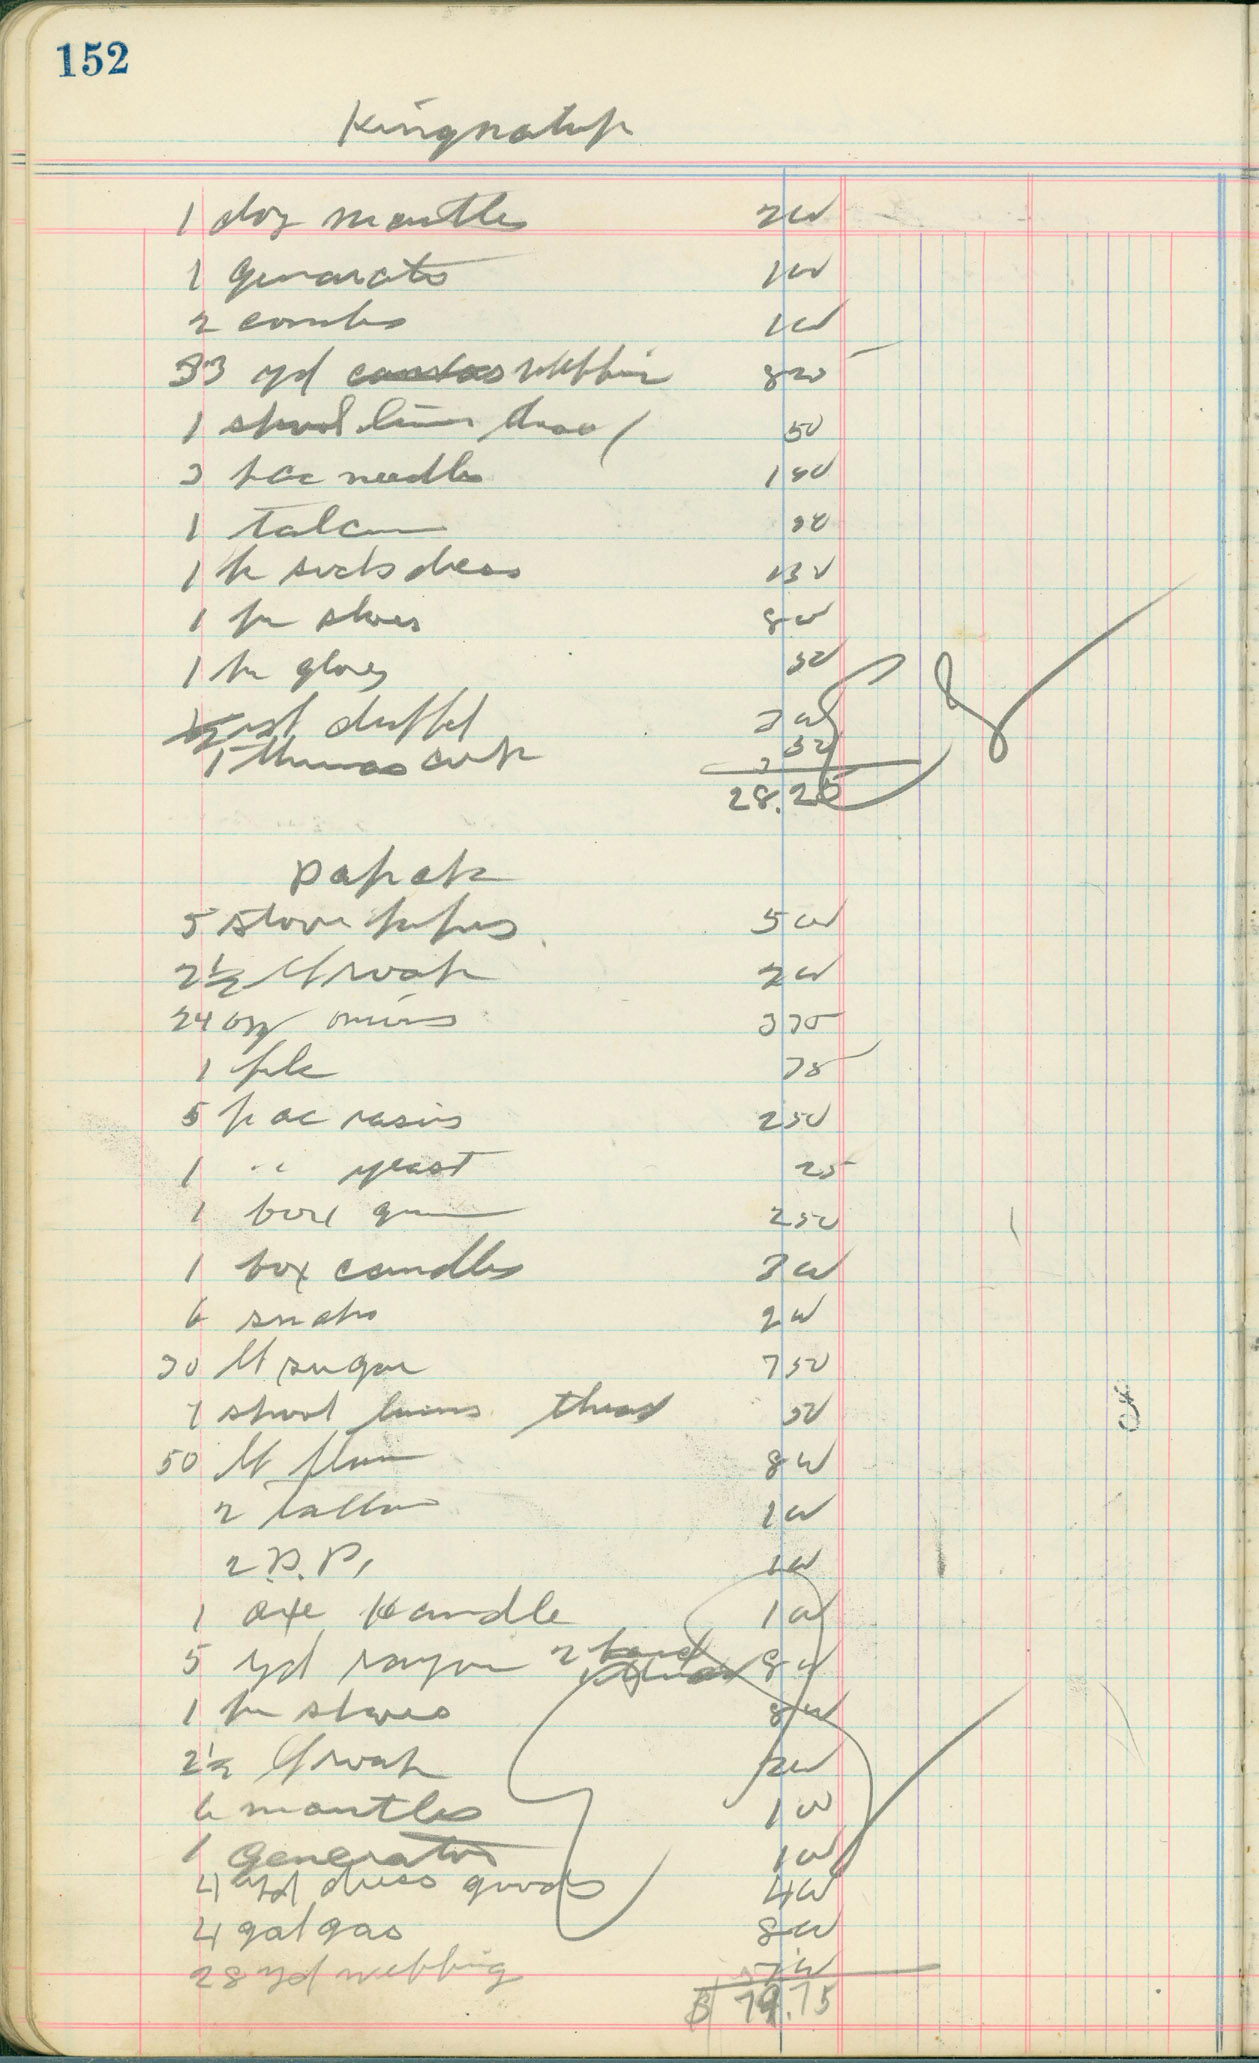 152
Kingnatuk
1 doz mantles 200
1 genarato 100
2 combs 100
33 yd webbin 825
1 spool linen 50
3 pac needles 150
1 talcum
1 pr socks dress
1 pr shoes 800
1 pr gloves 50
duffel
1 thermos cup
28.25
Papak
5 stove pipes 500
2½ soap 200
24 oz onions 375
1 75
5 pac rasins 250
1 " yeast 25
1 box gum 250
1 box candles 300
6 snaps 200
30 lb sugar 750
1 spool linen thread 50
50 lb flour 800
2 tallow 100
2 P.P. 100
1 axe Handle 100
5 yd rayon 2 800
1 pr shoes 800
2½ soap 200
6 mantles 100
1 Generator 100
4 yd dress goods 400
4 gal gas 800
28 yd webbing 700
$ 79.75